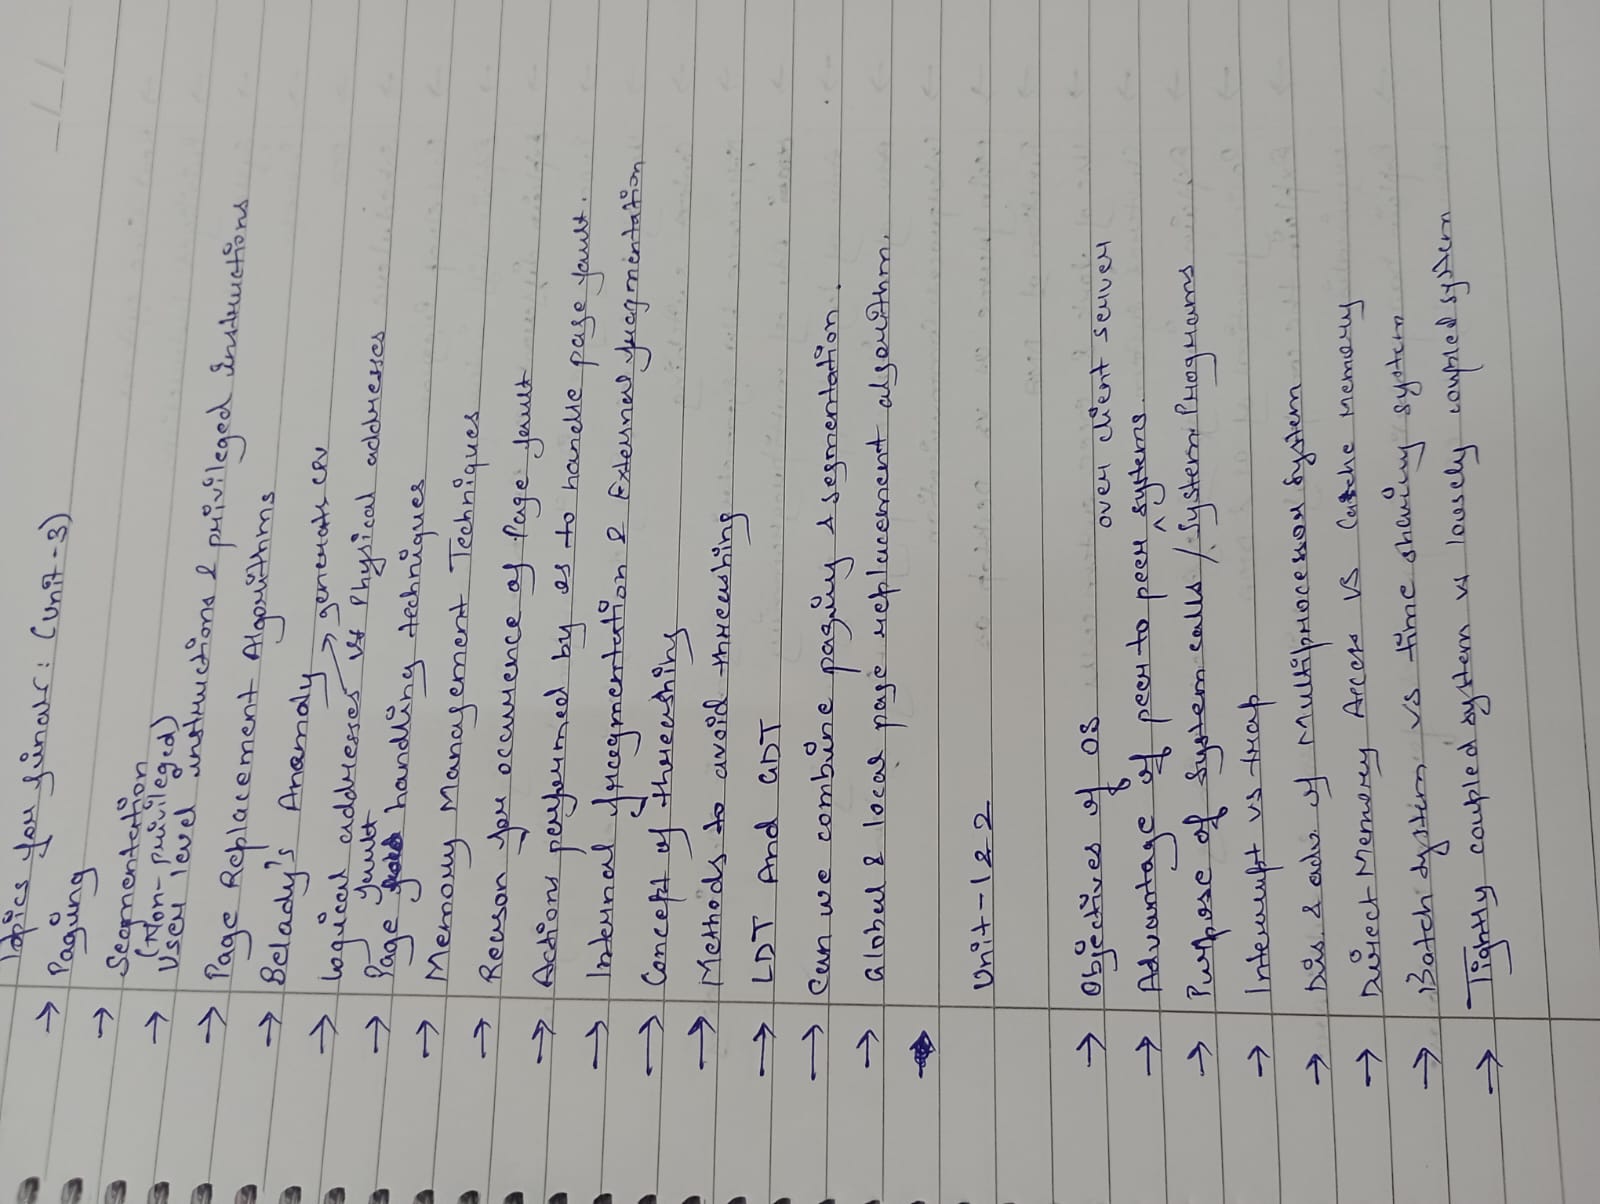 Topics for finals: (Unit-3)
→ Paging
→ Segmentation
(Non-privileged)
→ User level instructions & privileged instructions
→ Page Replacement Algorithms
→ Belady's Anamoly
→ generats CPU
→ Logical addresses vs Physical addresses
fault
→ Page handling techniques
→ Memory Management Techniques
→ Reason for occurrence of Page fault
→ Actions performed by os to handle page fault.
→ Internal fragmentation & External fragmentation
→ Concept of threashing
→ Methods to avoid threashing
→ LDT And GDT
→ Can we combine paging & segmentation.
→ Global & local page replacement algorithm.
Unit-1 & 2
→ Objectives of OS
over client server
→ Advantage of peer to peer ^ systems.
→ Purpose of System calls / System Programs
→ Interrupt vs trap
→ Dis. & adv. of Multiprocessor System
→ Direct Memory Access VS Catche Memory
→ Batch System vs time sharing system
→ Tightly coupled system vs lousely coupled system